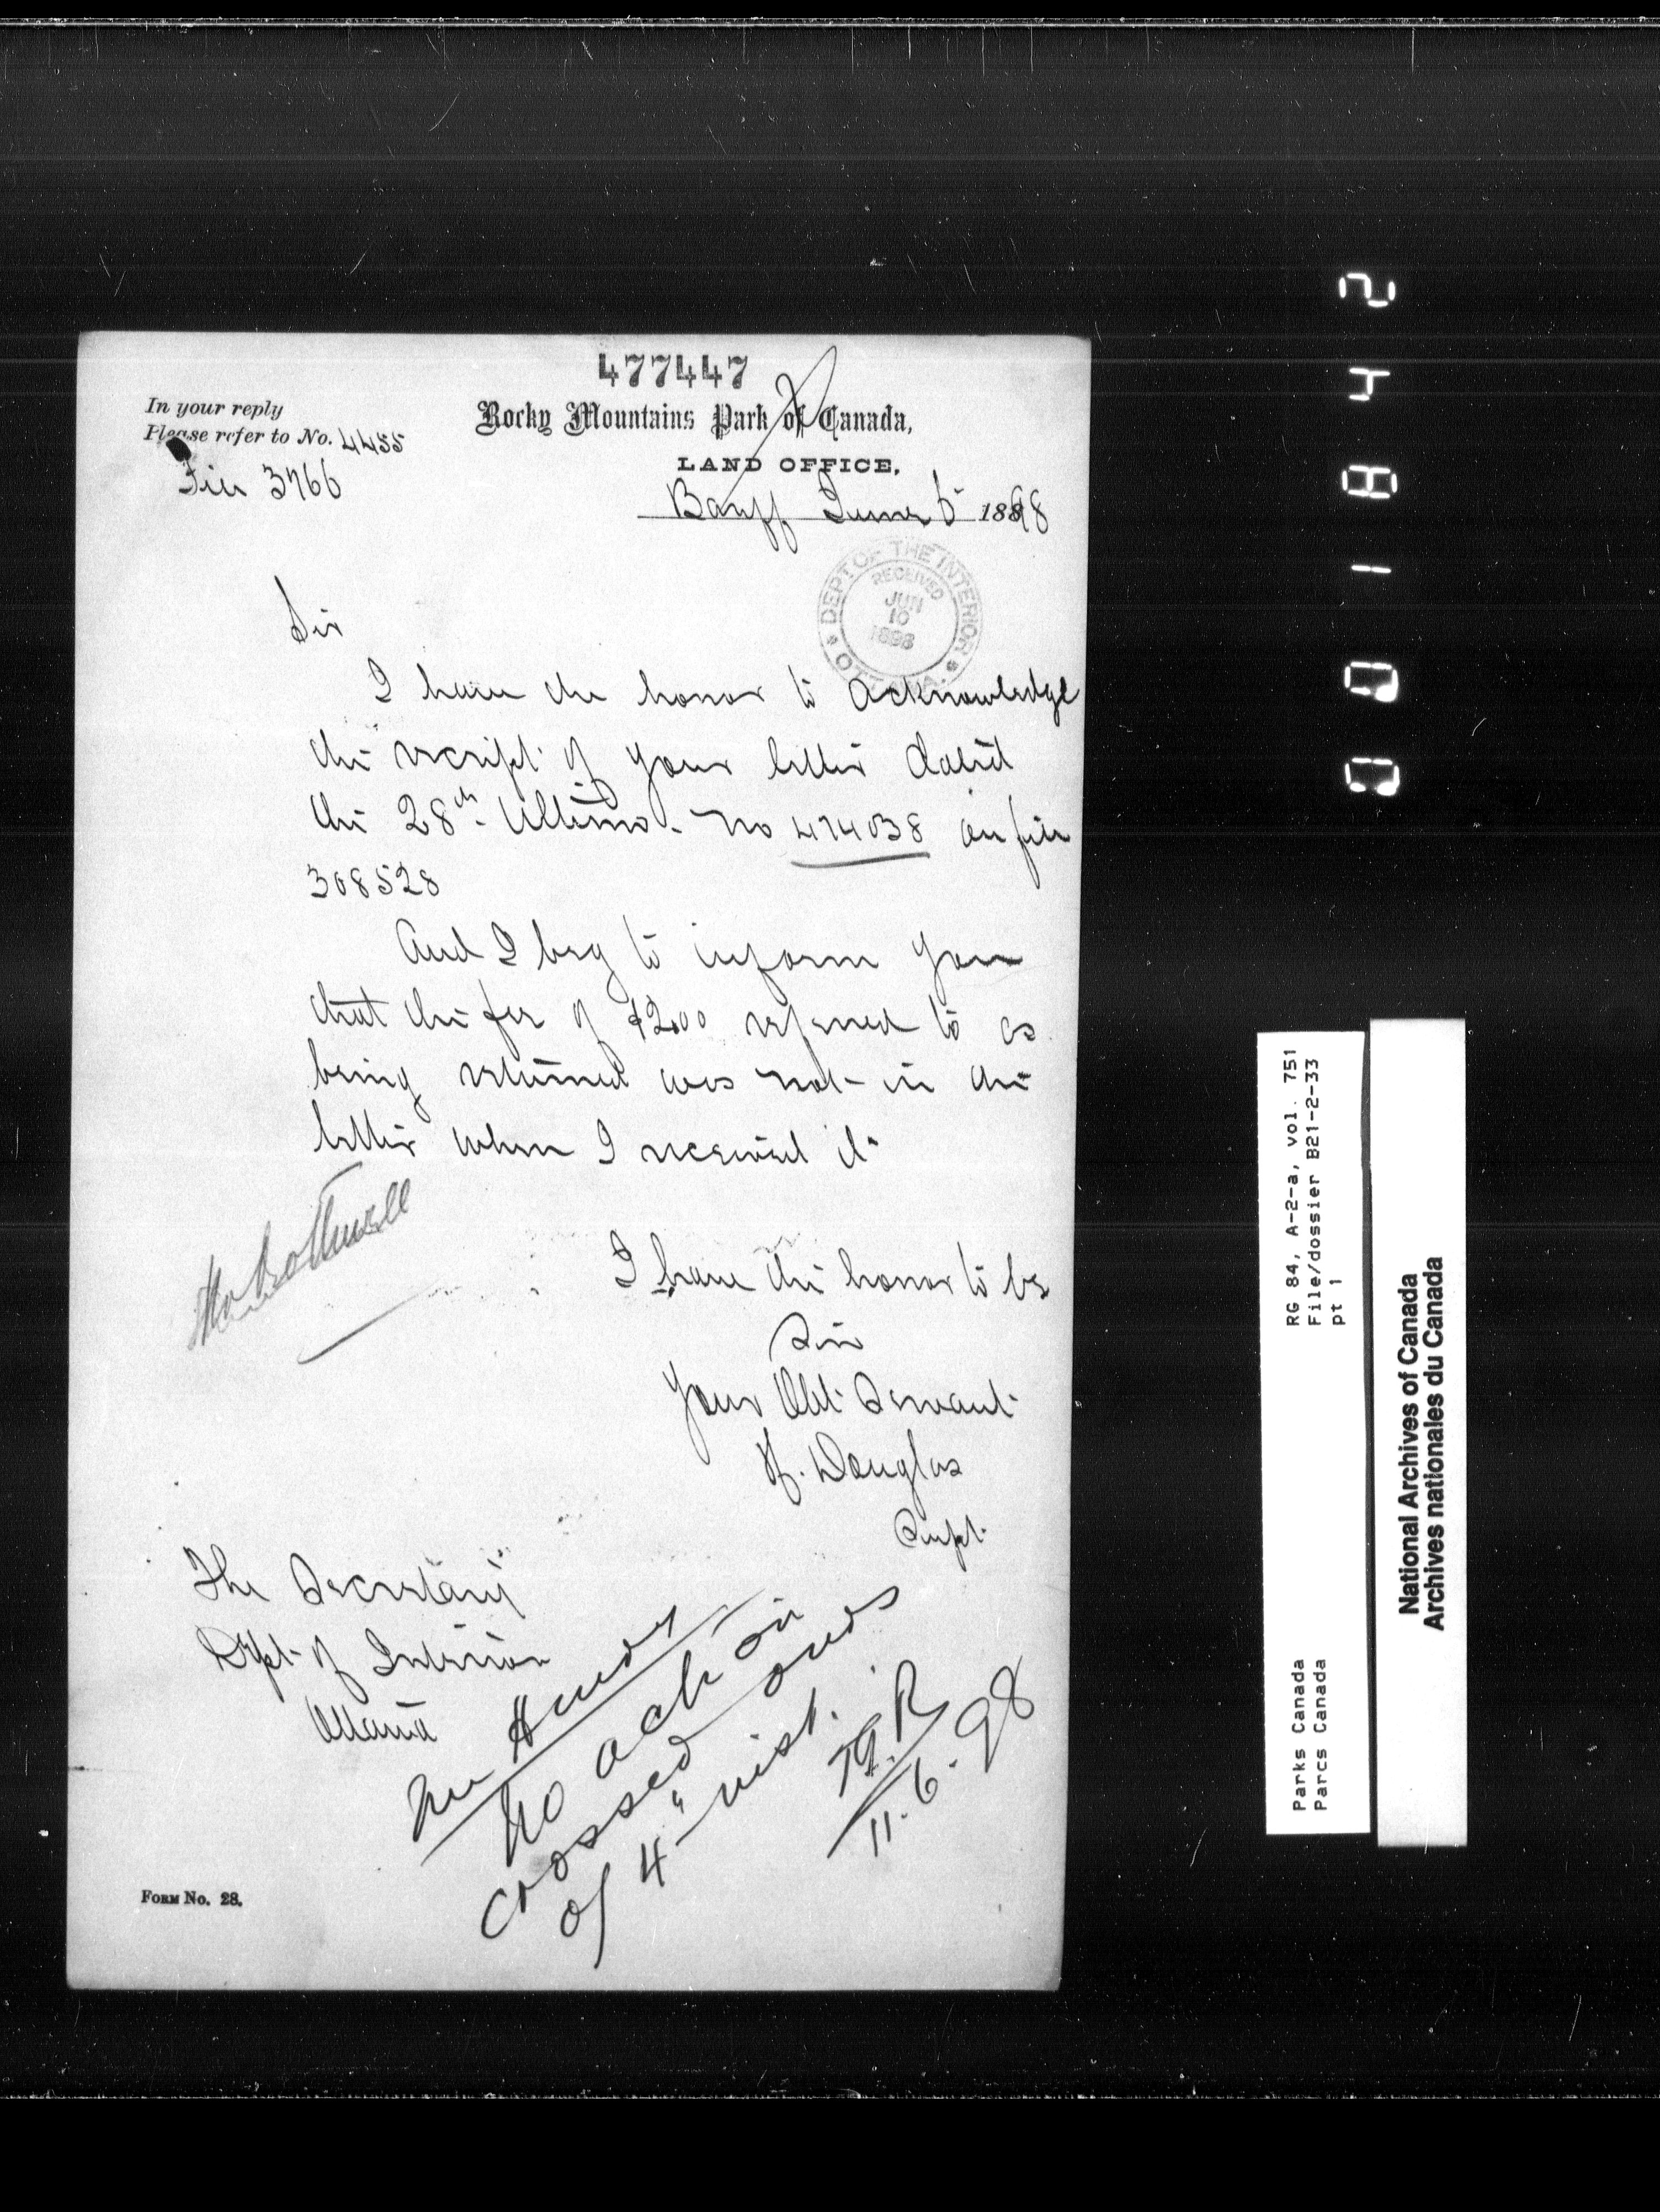 477447
In your reply
Please refer to No. 4455
File 3766
Rocky Mountains Park of Canada,
LAND OFFICE,
Banff June 6 1898
DEPT OF THE INTERIOR
RECEIVED
JUN
10
1898
OTTAWA
Sir
I have the honor to acknowledge
the receipt of your letter dated
the 28th Ultimo - No 474038 on file
308528
And I beg to inform you
that the fee of $2.00 referred to as
being returned was not in the
letter when I received it
I have the honor to be
Sir
Your Obt Servant
H. Douglas
Supt
The Secretary
Dept of Interior
Ottawa
No ack in
crossed ones
of 4" inst.
11.6.98
FORM No. 28.
001842
RG 84, A-2-a, vol. 751
File/dossier B21-2-33
pt 1
Parks Canada
Parcs Canada
National Archives of Canada
Archives nationales du Canada